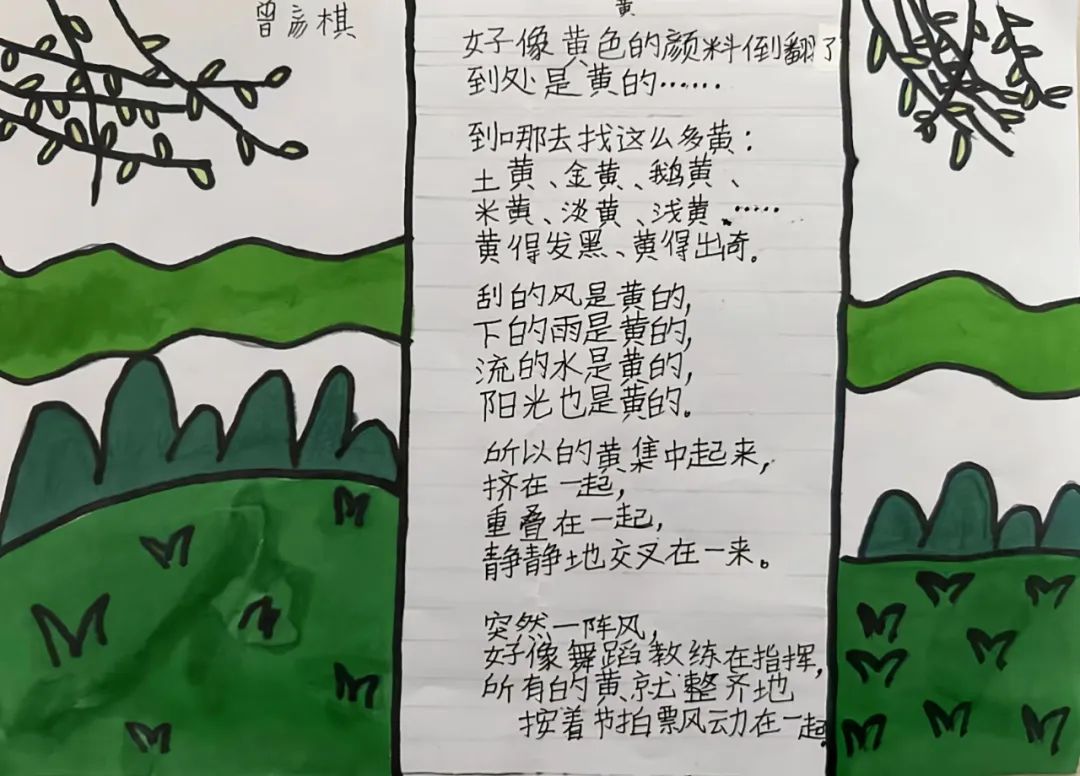 曾彦棋
黄
好像黄色的颜料倒翻了
到处是黄的……
到哪去找这么多黄：
土黄、金黄、鹅黄、
米黄、淡黄、浅黄……
黄得发黑、黄得出奇。
刮的风是黄的，
下的雨是黄的，
流的水是黄的，
阳光也是黄的。
所以的黄集中起来，
挤在一起，
重叠在一起，
静静地交叉在一来。
突然一阵风，
好像舞蹈教练在指挥，
所有的黄就整齐地
按着节拍票风动在一起。